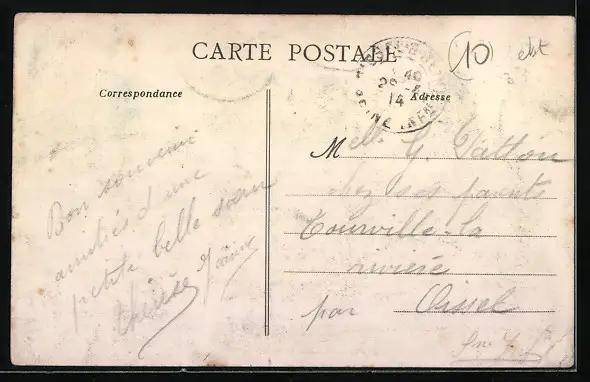 CARTE POSTALE
10
Correspondance
Adresse
14
Bon souvenir
amitiés d'une
petite belle sœur
Thérèse
Melle G.
chez ses parents
Tourville-la
rivière
par Oissel